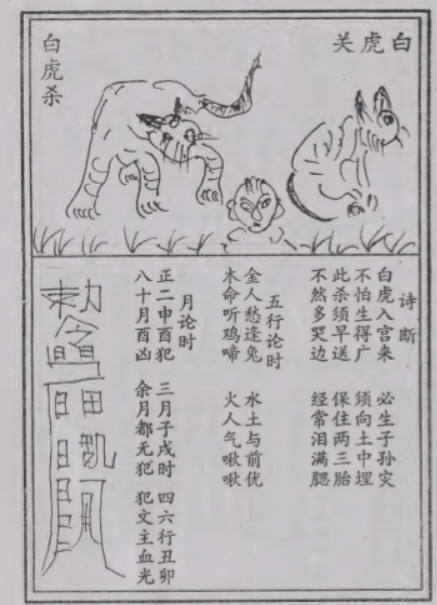 白虎关
白虎杀
诗断
白虎入宫来 必生子孙灾
不怕生得广 须向土中埋
此杀须早送 保住两三胎
不然多哭边 经常泪满腮
五行论时
金人愁逢兔 水土与前优
木命听鸡啼 火人气啾啾
月论时
正二申酉犯 三月子戌时 四六行丑卯
八十月酉凶 余月都无犯 犯文主血光